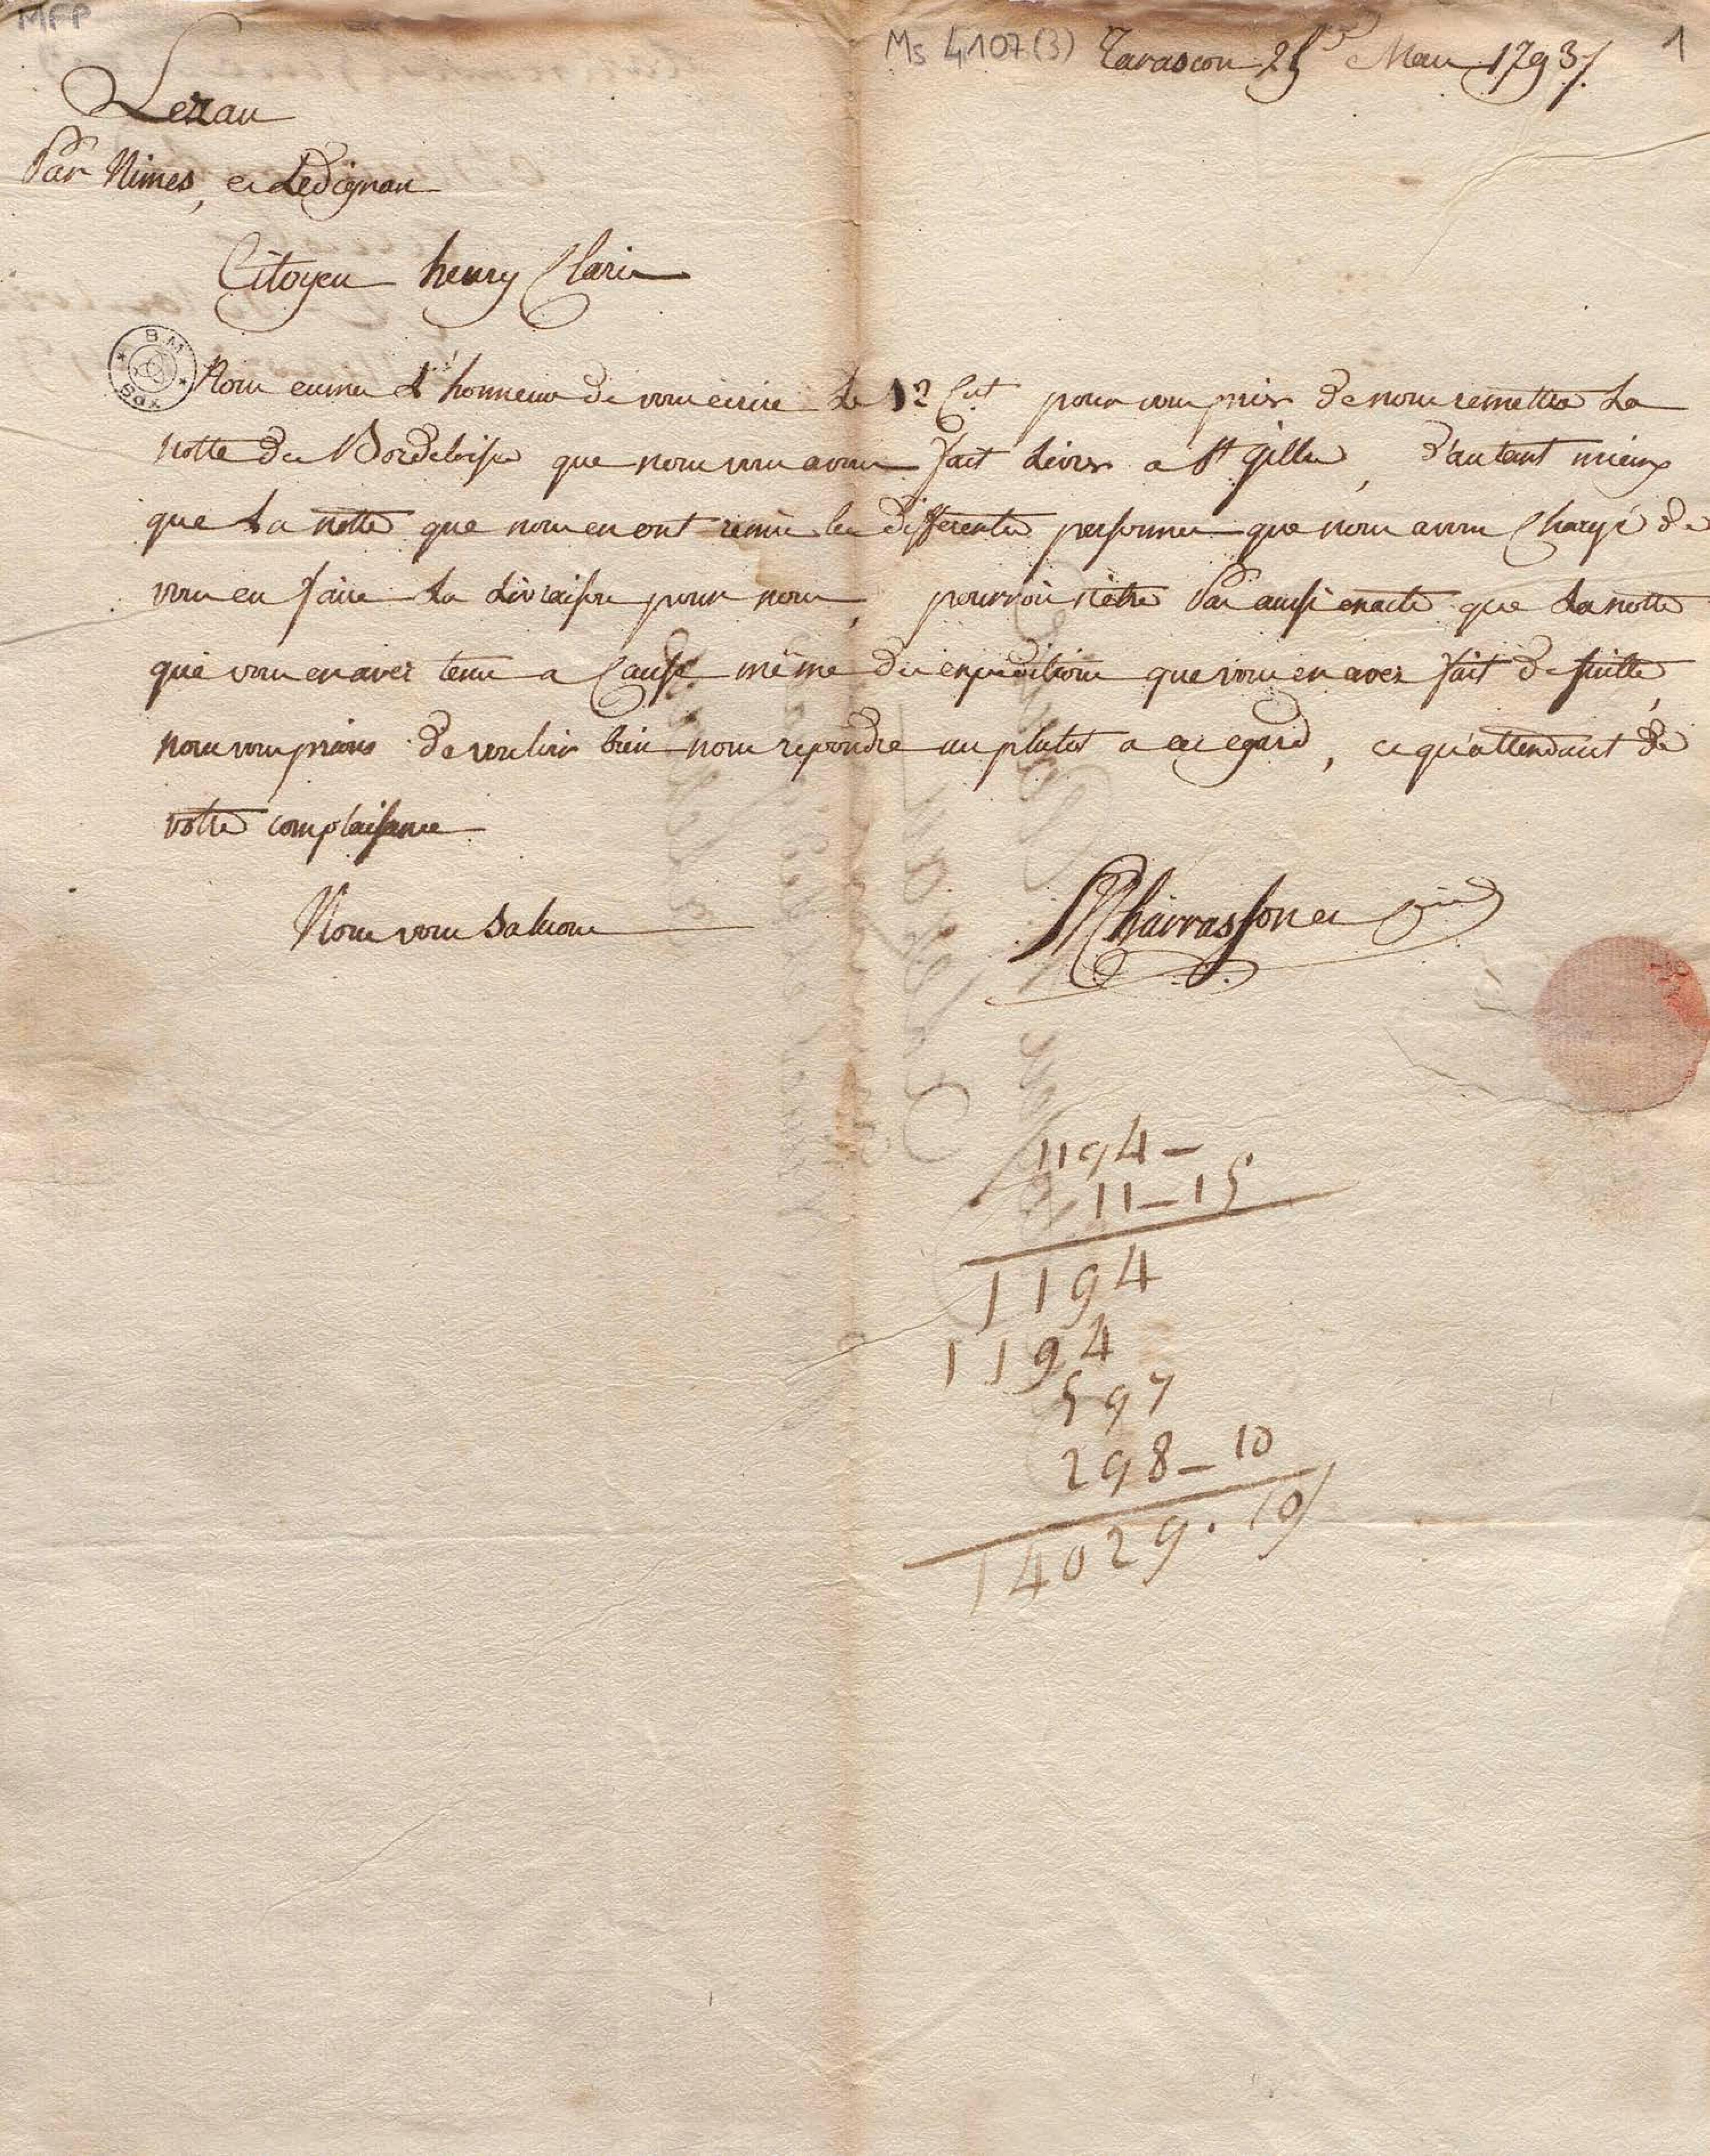 MFP
Ms 4107 (3) Tarascon 25 Mars 1793
1
Lezan
Par Nimes, et Ledignan
Citoyen henry Claris
BM
Nous eumes L'honneur de vous écrire Le 12 Ct pour vous prier de nous remettre La
notte des Bordeloises que nous vous avons fait Livrer a St Gilles, d'autant mieux
que La notte que nous en ont remis les differentes personnes que nous avons Chargé de
vous en faire La Livraison pour nous, pourroit n'être Pas aussi exacte que La notte
que vous en avez tenu a Cause même des expeditions que vous en avez fait de suitte,
nous vous prions de vouloir bien nous repondre au plutot a cet egard, ce qu'attendant de
votre complaisance
Nous vous Saluons
Charrasson
1194 –
11 – 15
1194
1194
597
298 – 10
14029 . 10